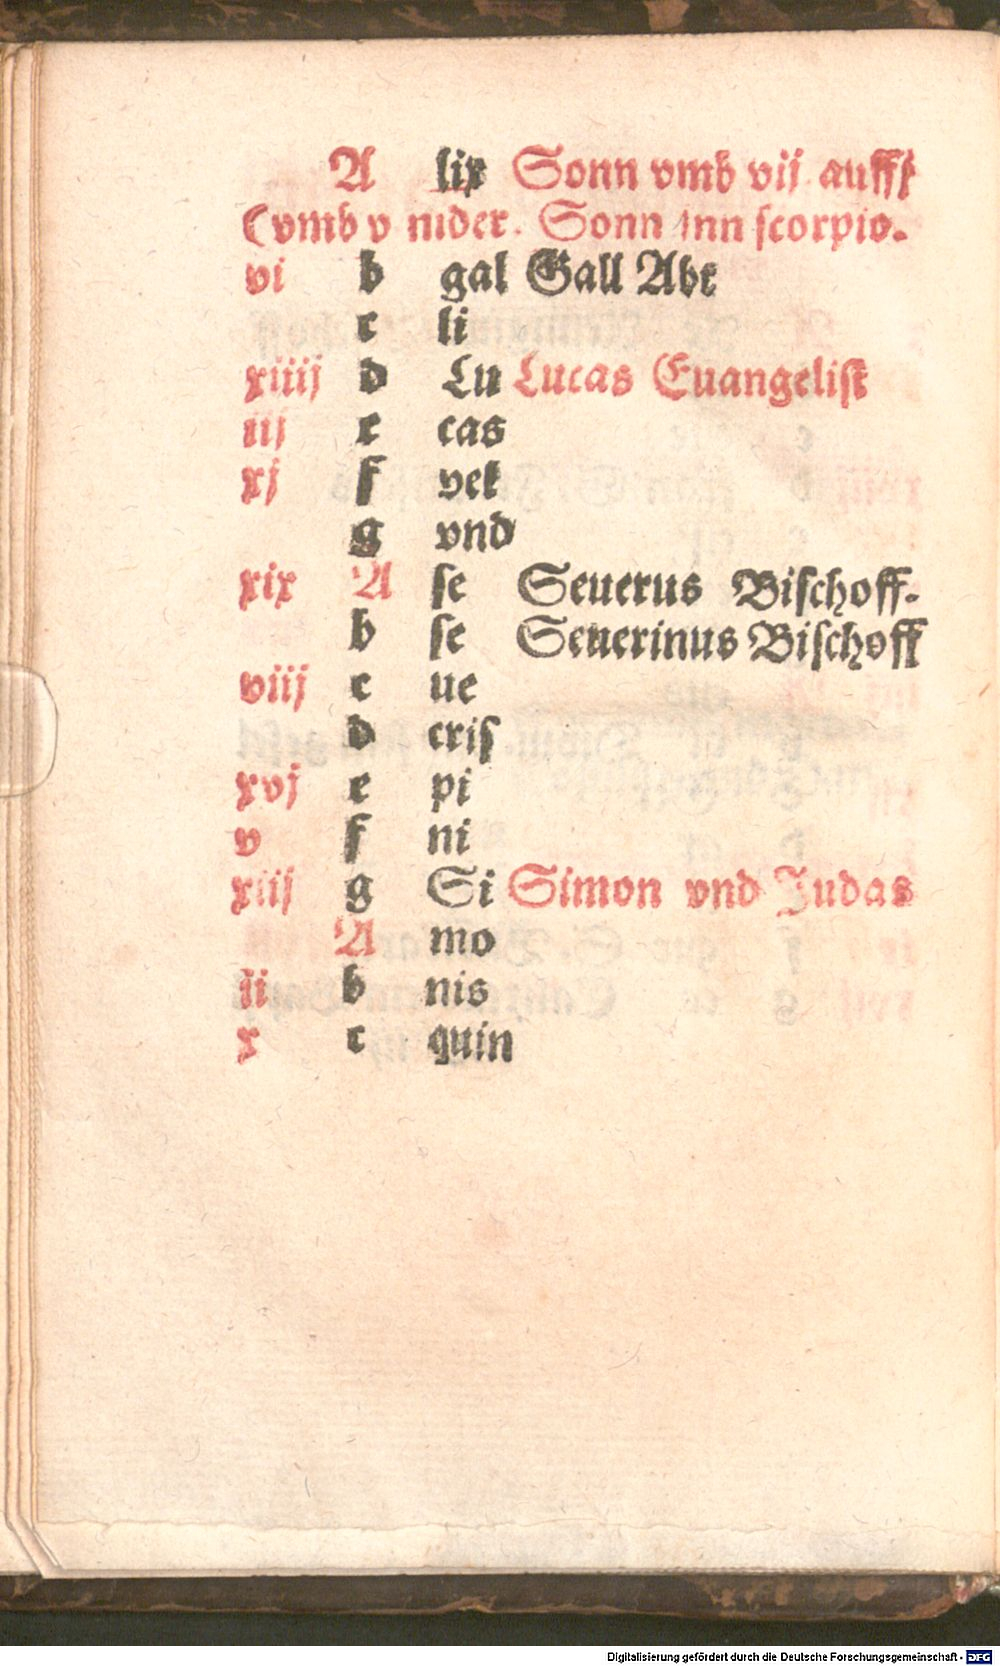 A lix Sonn vmb vij auff
(vmb v nider. Sonn inn scorpio.
vi b gal Gall Abt
c li
xiiij d Lu Lucas Euangelist
iij e cas
xj f vel
g vnd
xix A se Seuerus Bischoff.
b se Seuerinus Bischoff
viij c ue
d cris
xvj e pi
v f ni
xiij g Si Simon vnd Judas
A mo
ii b nis
x c quin
Digitalisierung gefördert durch die Deutsche Forschungsgemeinschaft - DFG